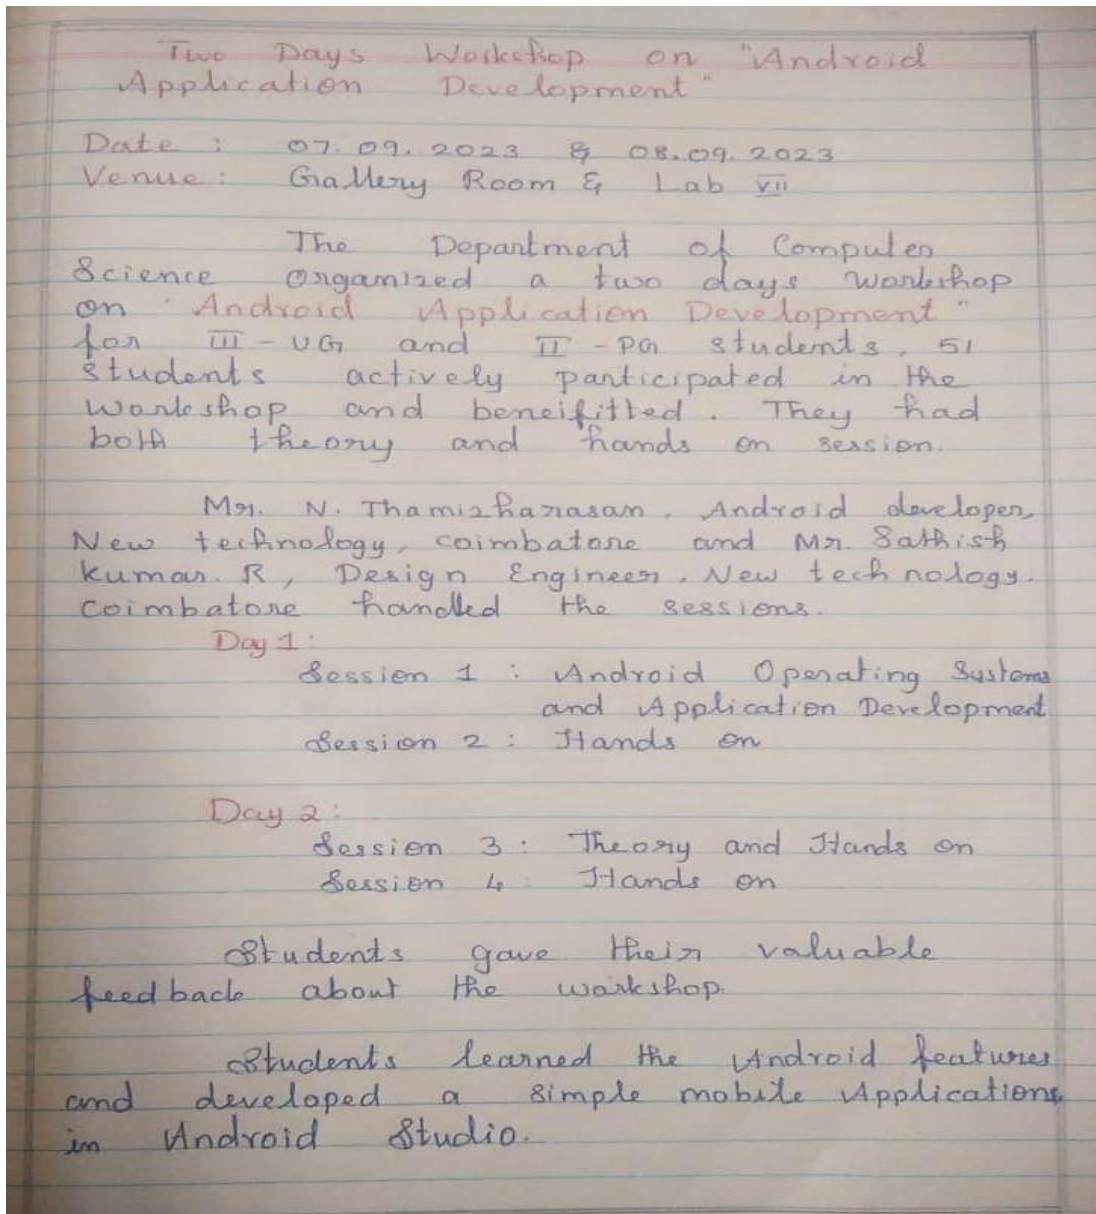 Two Days Workshop on "Android
Application Development"
Date : 07.09.2023 & 08.09.2023
Venue : Gallery Room & Lab VII
The Department of Computer
Science organized a two days workshop
on "Android Application Development"
for III - UG and II - PG students. 51
students actively participated in the
workshop and beneifitted. They had
both theory and hands on session.
Mr. N. Thamizharasan, Android developer,
New technology, coimbatore and Mr. Sathish
kumar. R, Design Engineer, New technology.
coimbatore handled the sessions.
Day 1:
Session 1 : Android Operating Systems
and Application Development
Session 2 : Hands on
Day 2:
Session 3 : Theory and Hands on
Session 4 : Hands on
Students gave their valuable
feedback about the workshop.
Students learned the Android features
and developed a simple mobile Applications
in Android Studio.